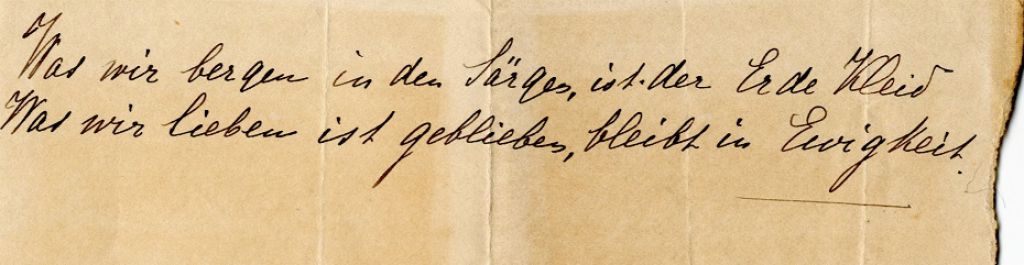 Was wir bergen in den Särgen, ist der Erde Kleid
Was wir lieben ist geblieben, bleibt in Ewigkeit.